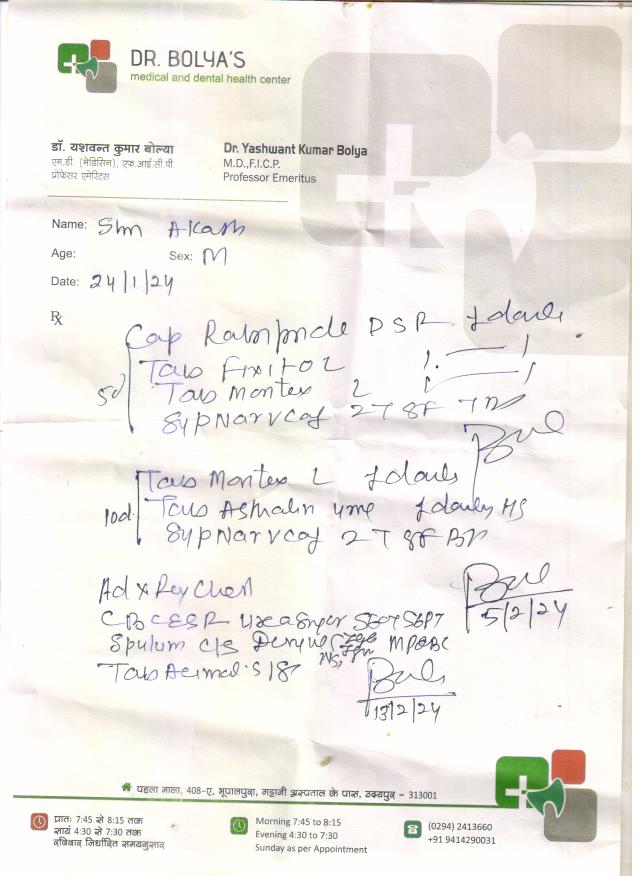 DR. BOLYA'S
medical and dental health center
डॉ. यशवन्त कुमार बोल्या
एम.डी. (मेडिसिन), एफ.आई.सी.पी.
प्रोफेसर एमेरिटस
Dr. Yashwant Kumar Bolya
M.D.,F.I.C.P.
Professor Emeritus
Name: Shri Akash
Age: Sex: M
Date: 24/1/24
Rx
Cap DSR 1 daily
5d
Tab
Tab Montex 2
Syp 2 TSF TDS
10d
Tab Montex 2 1 daily
Tab Asthalin 4mg 1 daily HS
Syp 2 TSF BD
5/2/24
Ad X Ray Chest
CBC ESR SGOT SGPT
Sputum C/S Dengue IgG MP
NS1 IgM
Tab
13/2/24
पहला माला, 408-ए, भूपालपुरा, गट्टानी अस्पताल के पास, उदयपुर – 313001
प्रातः 7:45 से 8:15 तक
सायं 4:30 से 7:30 तक
रविवार निर्धारित समयनुसार
Morning 7:45 to 8:15
Evening 4:30 to 7:30
Sunday as per Appointment
(0294) 2413660
+91 9414290031